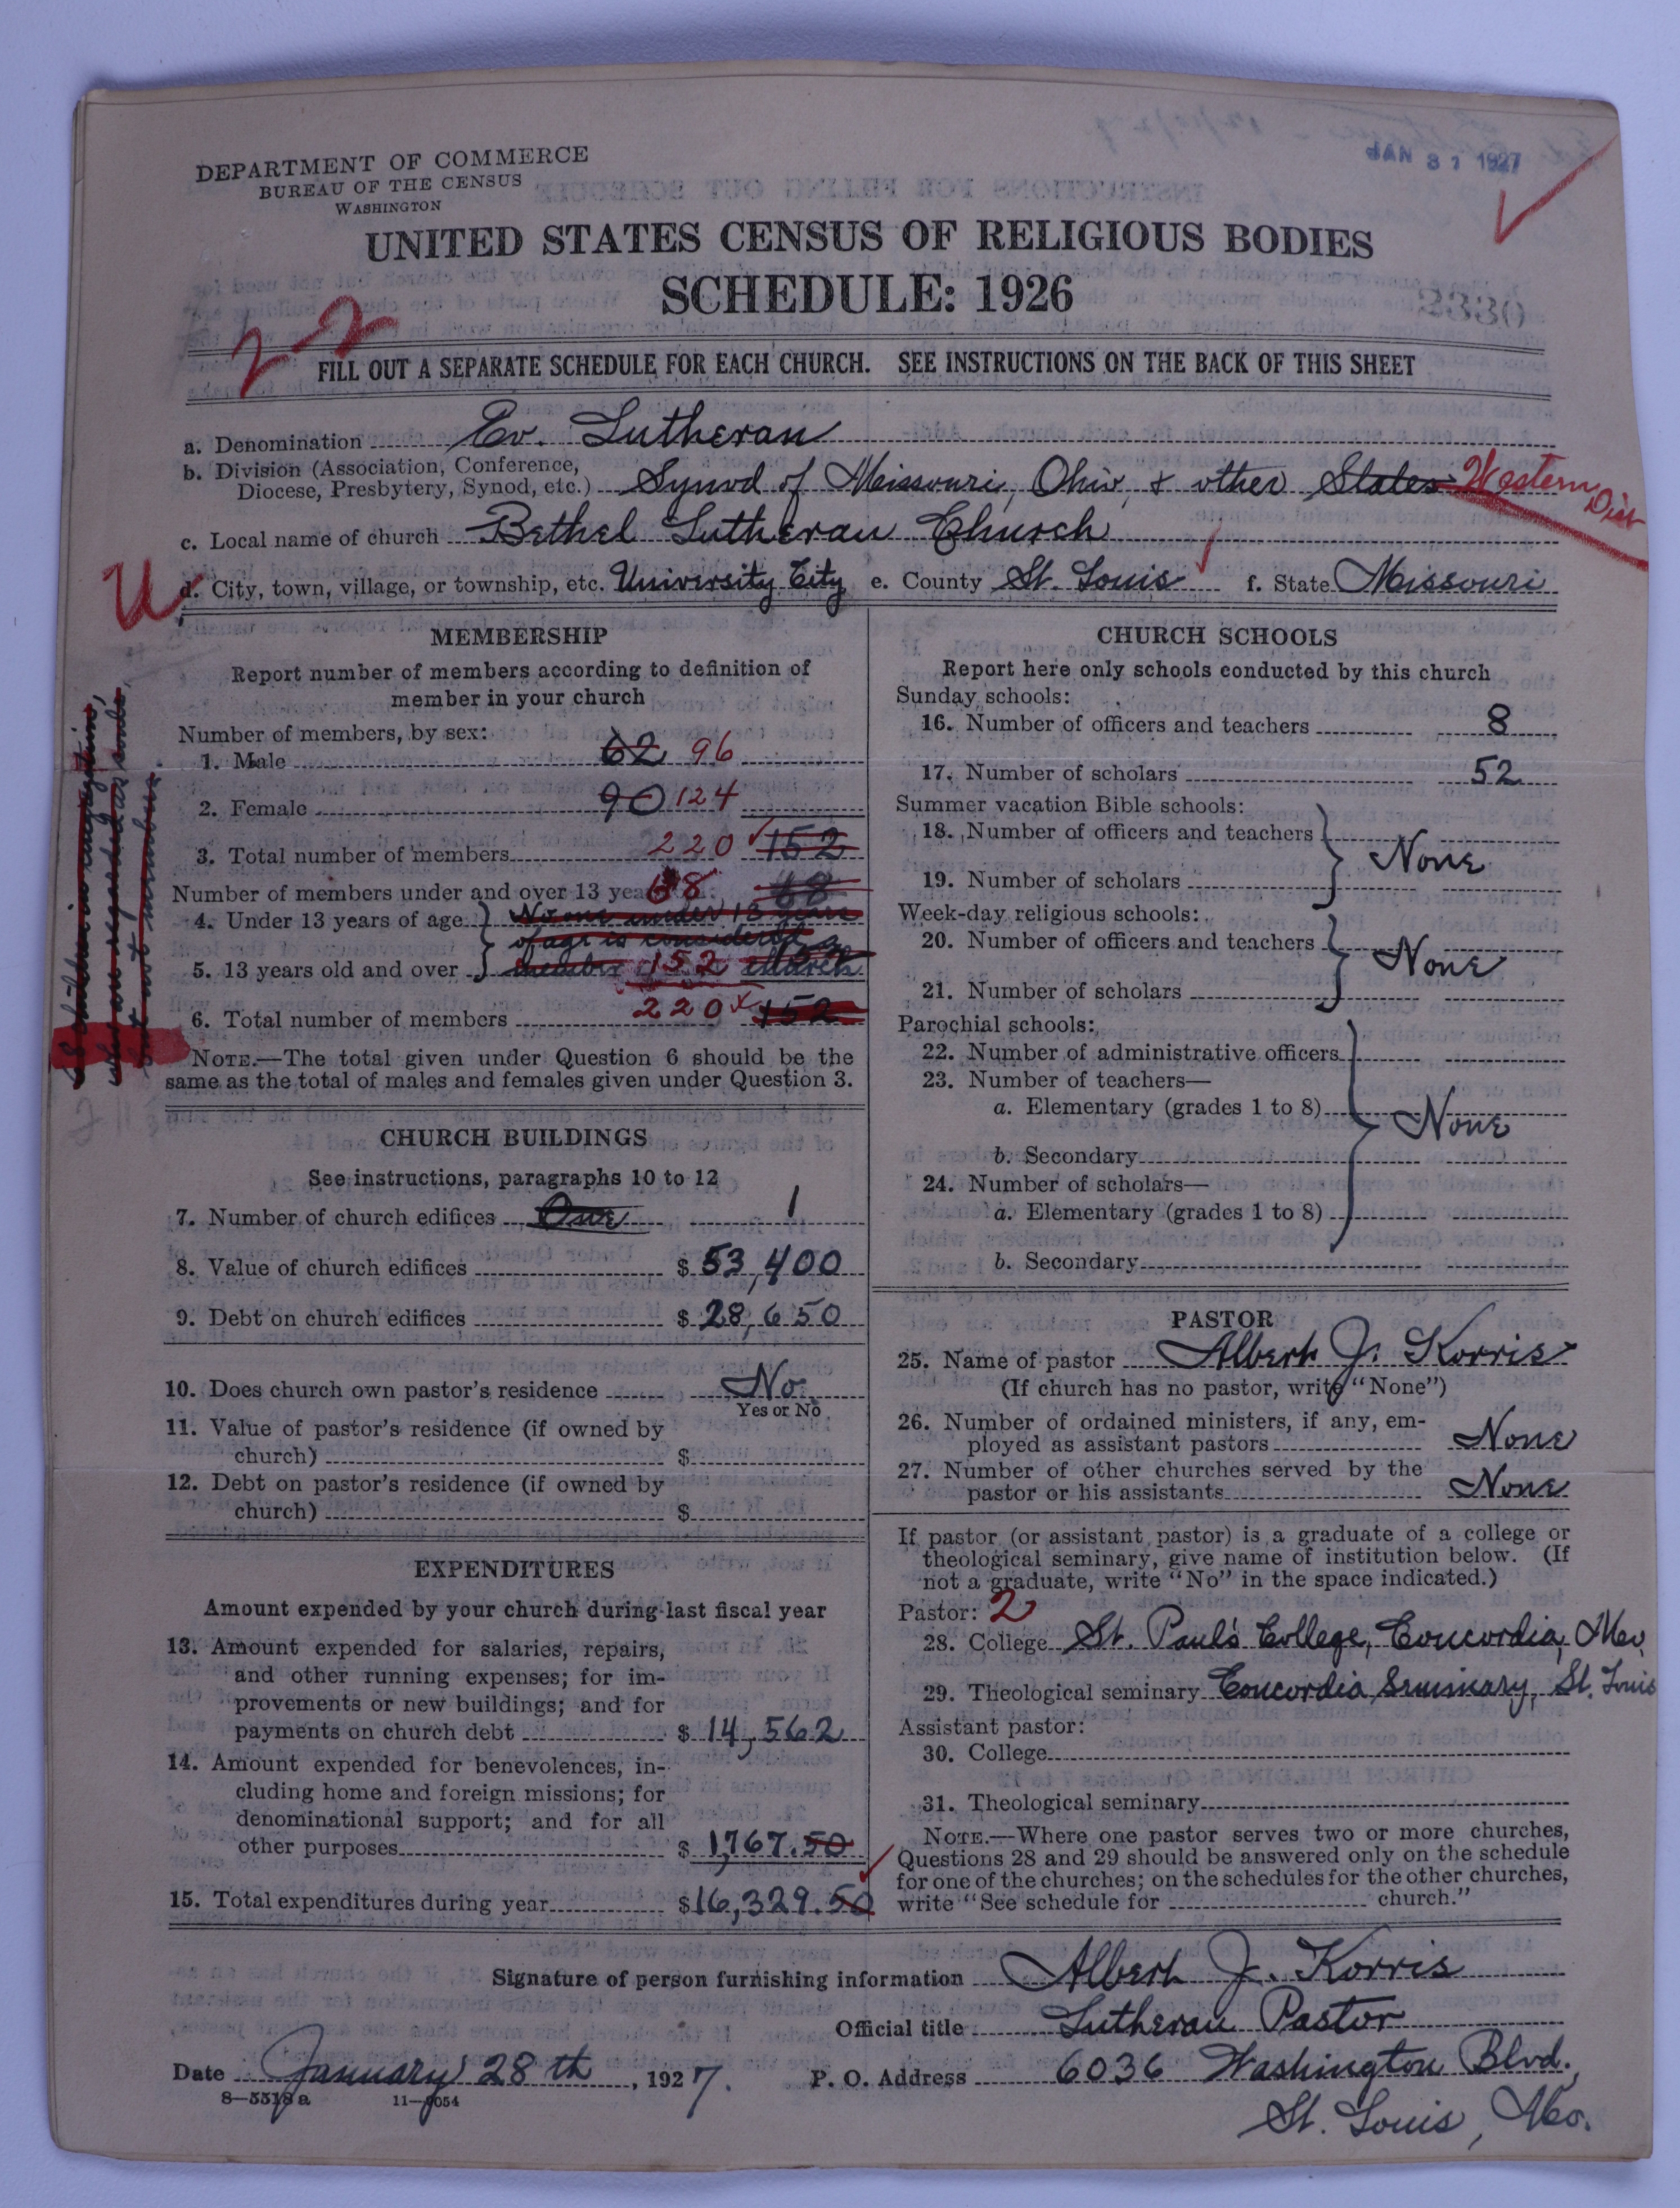 DEPARTMENT OF COMMERCE
BUREAU OF THE CENSUS
WASHINGTON
JAN 31 1927
UNITED STATES CENSUS OF RELIGIOUS BODIES
SCHEDULE: 1926
22
FILL OUT A SEPARATE SCHEDULE FOR EACH CHURCH. SEE INSTRUCTIONS ON THE BACK OF THIS SHEET
a. Denomination Ev. Lutheran
b. Division (Association, Conference,
Diocese, Presbytery, Synod, etc.) Synod of Missouri, Ohio, & other States Western Dist
c. Local name of church Bethel Lutheran Church
U
d. City, town, village, or township, etc. University City e. County St. Louis f. State Missouri
MEMBERSHIP
Report number of members according to definition of
member in your church
Number of members, by sex:
1. Male 62 96
2. Female 90 124
3. Total number of members 220 152
Number of members under and over 13 years 68 68
4. Under 13 years of age No one under 13 years
of age is considered a
5. 13 years old and over member 152 church
6. Total number of members 220 152
NOTE.—The total given under Question 6 should be the
same as the total of males and females given under Question 3.
CHURCH BUILDINGS
See instructions, paragraphs 10 to 12
7. Number of church edifices One 1
8. Value of church edifices $ 53,400
9. Debt on church edifices $ 28,650
10. Does church own pastor's residence No
Yes or No
11. Value of pastor's residence (if owned by
church) $
12. Debt on pastor's residence (if owned by
church) $
EXPENDITURES
Amount expended by your church during last fiscal year
13. Amount expended for salaries, repairs,
and other running expenses; for im-
provements or new buildings; and for
payments on church debt $ 14,562
14. Amount expended for benevolences, in-
cluding home and foreign missions; for
denominational support; and for all
other purposes $ 1,767.50
15. Total expenditures during year $16,329.50
CHURCH SCHOOLS
Report here only schools conducted by this church
Sunday schools:
16. Number of officers and teachers 8
17. Number of scholars 52
Summer vacation Bible schools:
18. Number of officers and teachers
None
19. Number of scholars
Week-day religious schools:
20. Number of officers and teachers
None
21. Number of scholars
Parochial schools:
22. Number of administrative officers
23. Number of teachers—
a. Elementary (grades 1 to 8)
None
b. Secondary
24. Number of scholars—
a. Elementary (grades 1 to 8)
b. Secondary
PASTOR
25. Name of pastor Albert J. Korris
(If church has no pastor, write "None")
26. Number of ordained ministers, if any, em-
ployed as assistant pastors None
27. Number of other churches served by the
pastor or his assistants None
If pastor (or assistant pastor) is a graduate of a college or
theological seminary, give name of institution below. (If
not a graduate, write "No" in the space indicated.)
Pastor: 2
28. College St. Paul's College, Concordia, Mo.
29. Theological seminary Concordia Seminary, St. Louis
Assistant pastor:
30. College
31. Theological seminary
NOTE.—Where one pastor serves two or more churches,
Questions 28 and 29 should be answered only on the schedule
for one of the churches; on the schedules for the other churches,
write "See schedule for church."
Signature of person furnishing information Albert J. Korris
Official title Lutheran Pastor
Date January 28th, 1927. P. O. Address 6036 Washington Blvd.,
8—5518a 11—9054
St. Louis, Mo.